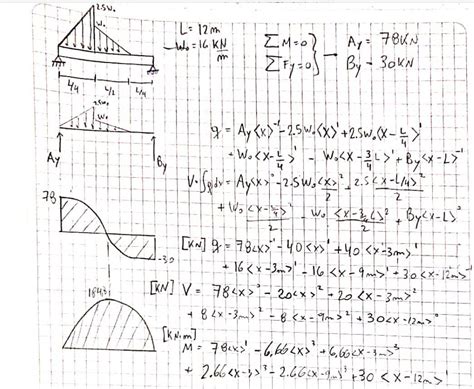 2.5W₀
W₀
L = 12m
W₀ = 16 KN/m
ΣM=0
ΣFy=0
Ay = 78KN
By - 30KN
L/4 L/2 L/4
2.5W₀
W₀
Ay
By
q = Ay<x>⁻¹ - 2.5W₀<x>¹ + 2.5W₀<x - L/4>¹
+ W₀<x - L/4>¹ - W₀<x - 3/4 L>¹ + By<x - L>⁻¹
V = ∫q dx = Ay<x>⁰ - 2.5W₀<x>²/2 + 2.5<x - L/4>²/2
+ W₀<x - L/4>²/2 - W₀<x - 3/4 L>²/2 + By<x - L>⁰
78
-30
[KN] q = 78<x>⁻¹ - 40<x>¹ + 40<x - 3m>¹
+ 16<x - 3m>¹ - 16<x - 9m>¹ + 30<x - 12m>⁻¹
[KN] V = 78<x>⁰ - 20<x>² + 20<x - 3m>²
+ 8<x - 3m>² - 8<x - 9m>² + 30<x - 12m>⁰
[KN·m]
M = 78<x>¹ - 6,66<x>³ + 6,66<x - 3m>³
+ 2.66<x - 3>³ - 2.66<x - 9m>³ + 30<x - 12m>¹